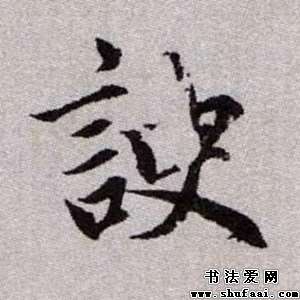 謏
书法爱网
www.shufaai.com